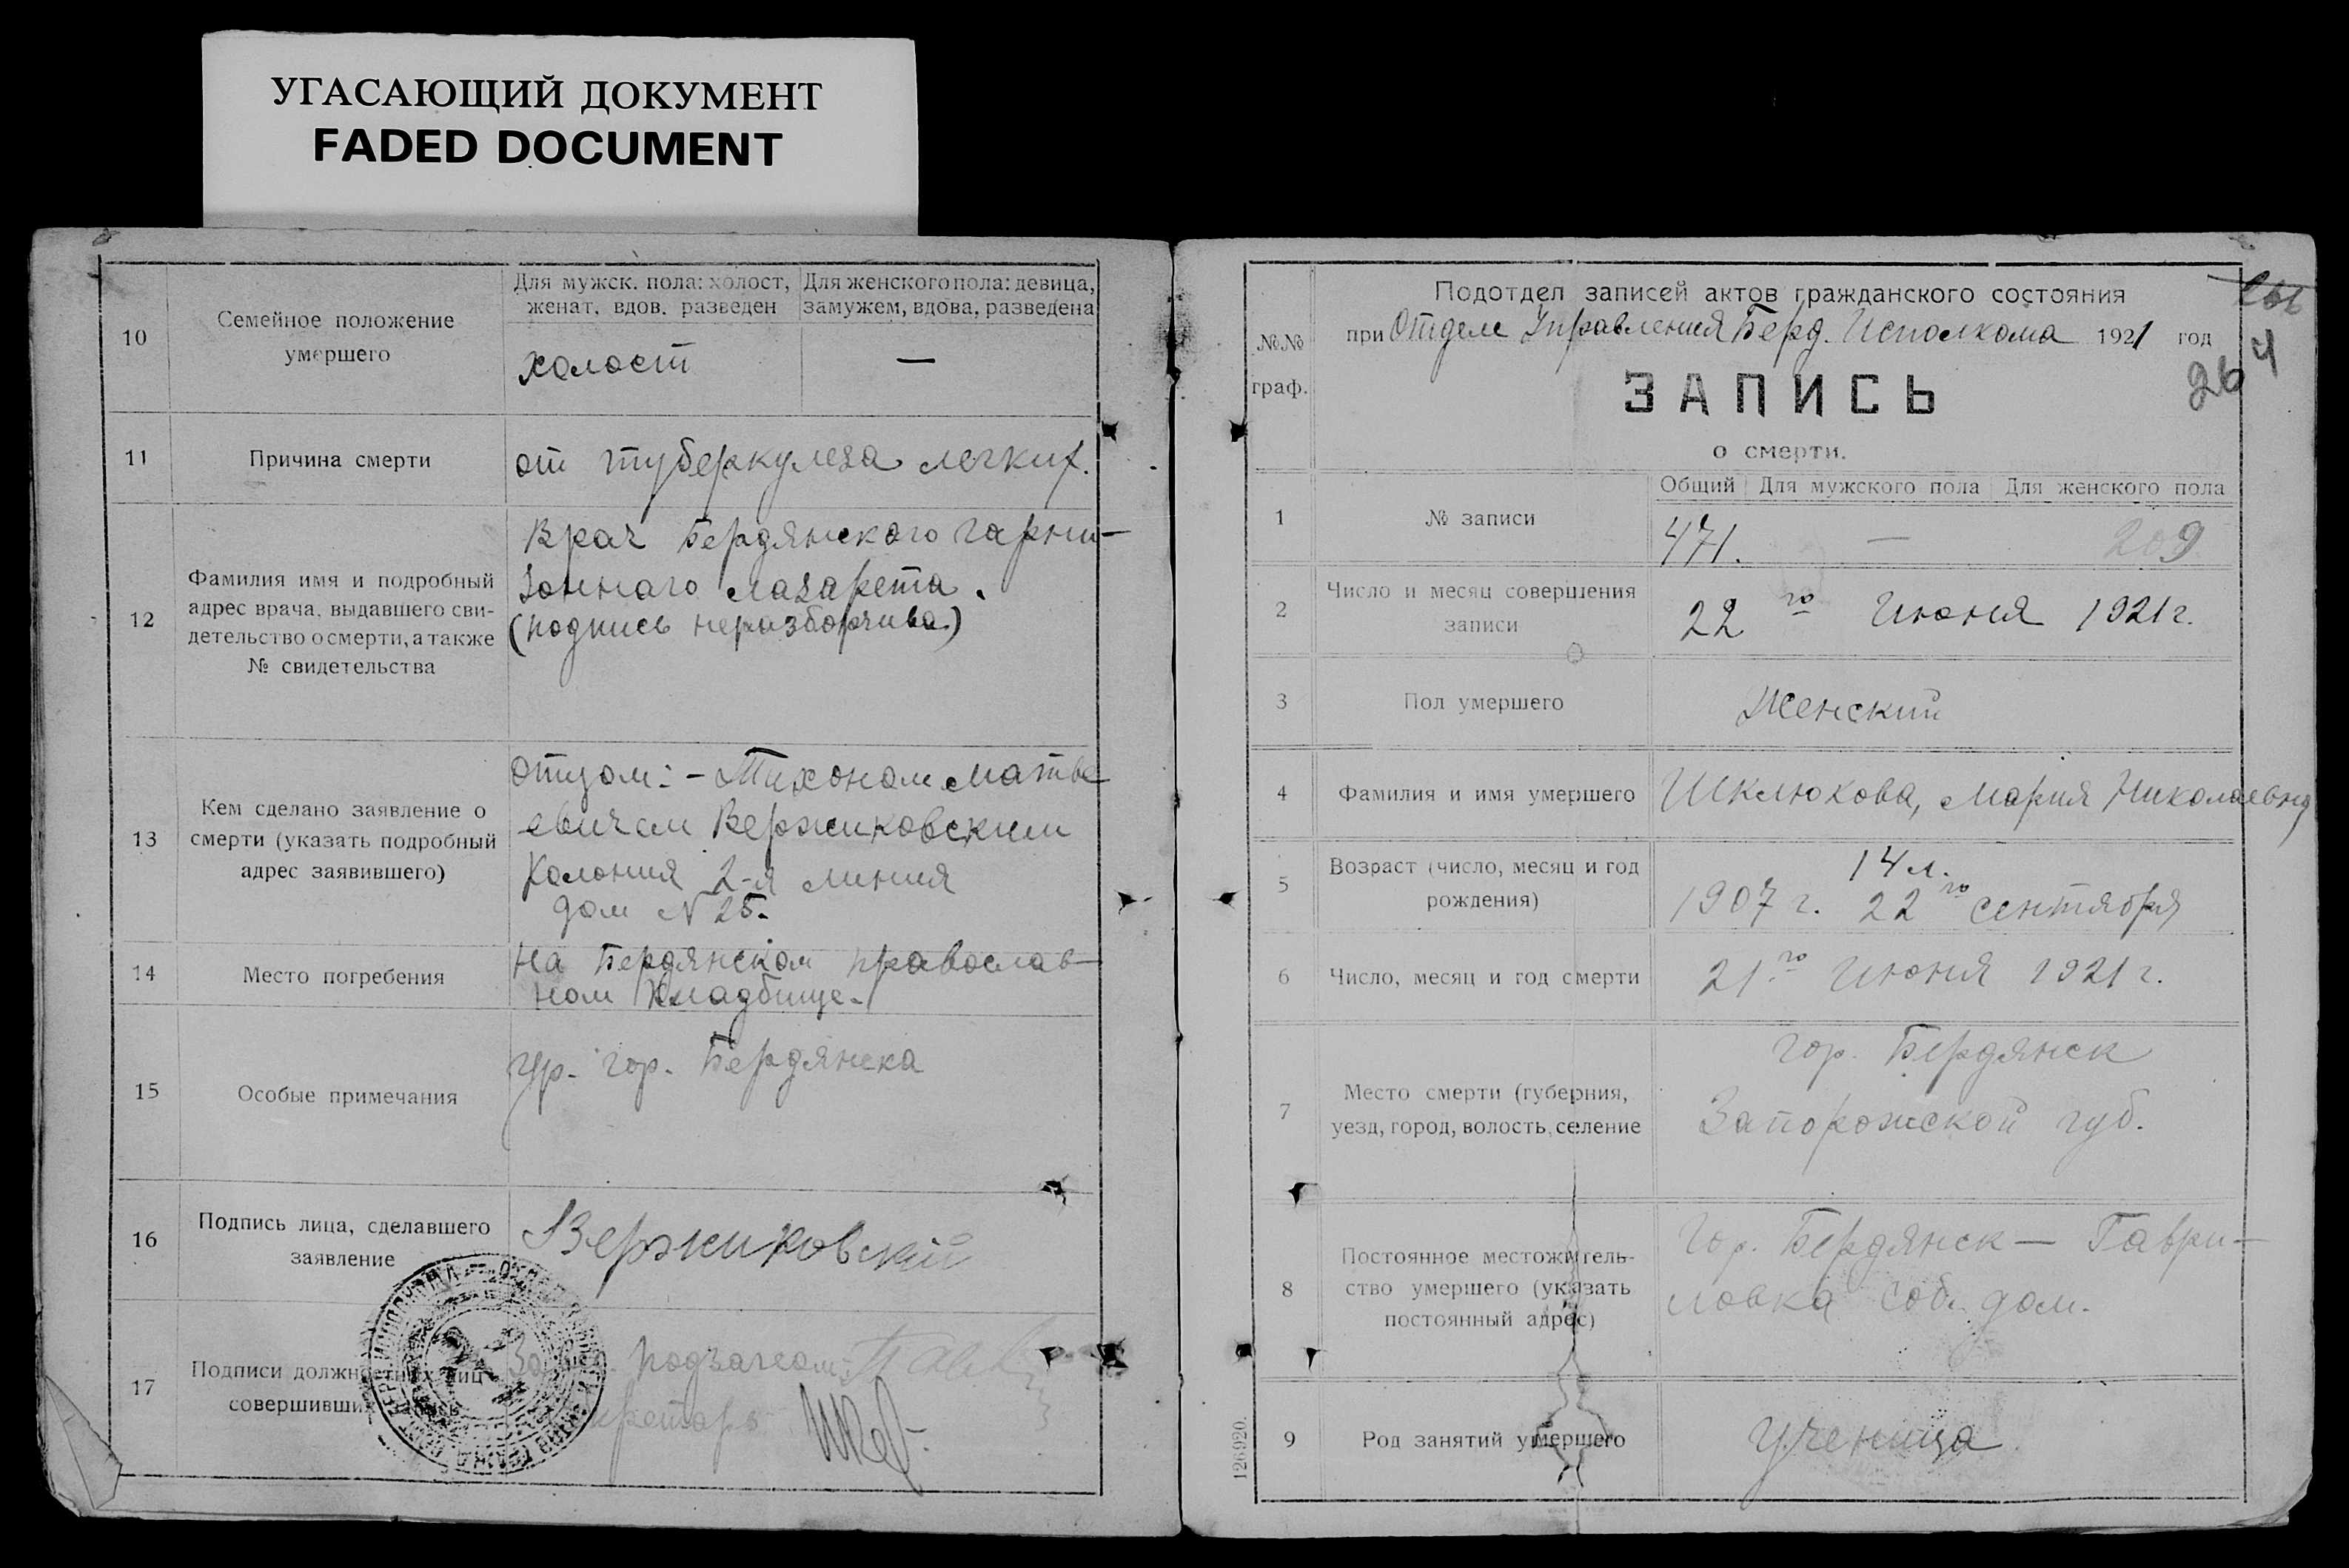 УГАСАЮЩИЙ ДОКУМЕНТ
FADED DOCUMENT
10
Семейное положение
умершего
Для мужск. пола: холост,
женат, вдов. разведен
Для женского пола: девица,
замужем, вдова, разведена
холост
—
11
Причина смерти
от туберкулеза легких.
12
Фамилия имя и подробный
адрес врача, выдавшего сви-
детельство о смерти, а также
№ свидетельства
Врач Бердянского гарни-
зоннаго лазарета.
(подпись неразборчива)
13
Кем сделано заявление о
смерти (указать подробный
адрес заявившего)
отцом: - Тихоном Матве
евичем Вержиковским
Колония 2-я линия
дом № 25.
14
Место погребения
на Бердянском православ-
ном кладбище.
15
Особые примечания
гр. гор. Бердянска
16
Подпись лица, сделавшего
заявление
Вержиковский
17
Подписи должностных лиц
совершивших запись
подзагсом
секретарь
№№
граф.
Подотдел записей актов гражданского состояния
при Отделе Управления Берд. Исполкома 1921 год
264
ЗАПИСЬ
о смерти.
1
№ записи
Общий
Для мужского пола
Для женского пола
471.
—
209
2
Число и месяц совершения
записи
22 го Июня 1921 г.
3
Пол умершего
Женский
4
Фамилия и имя умершего
Шклюкова, Мария Николаевна
5
Возраст (число, месяц и год
рождения)
14 л.
1907 г. 22 го сентября
6
Число, месяц и год смерти
21 го Июня 1921 г.
7
Место смерти (губерния,
уезд, город, волость, селение
гор. Бердянск
Запорожской губ.
8
Постоянное местожитель-
ство умершего (указать
постоянный адрес)
Гор. Бердянск — Гаври-
ловка соб. дом.
9
Род занятий умершего
Ученица
126920.